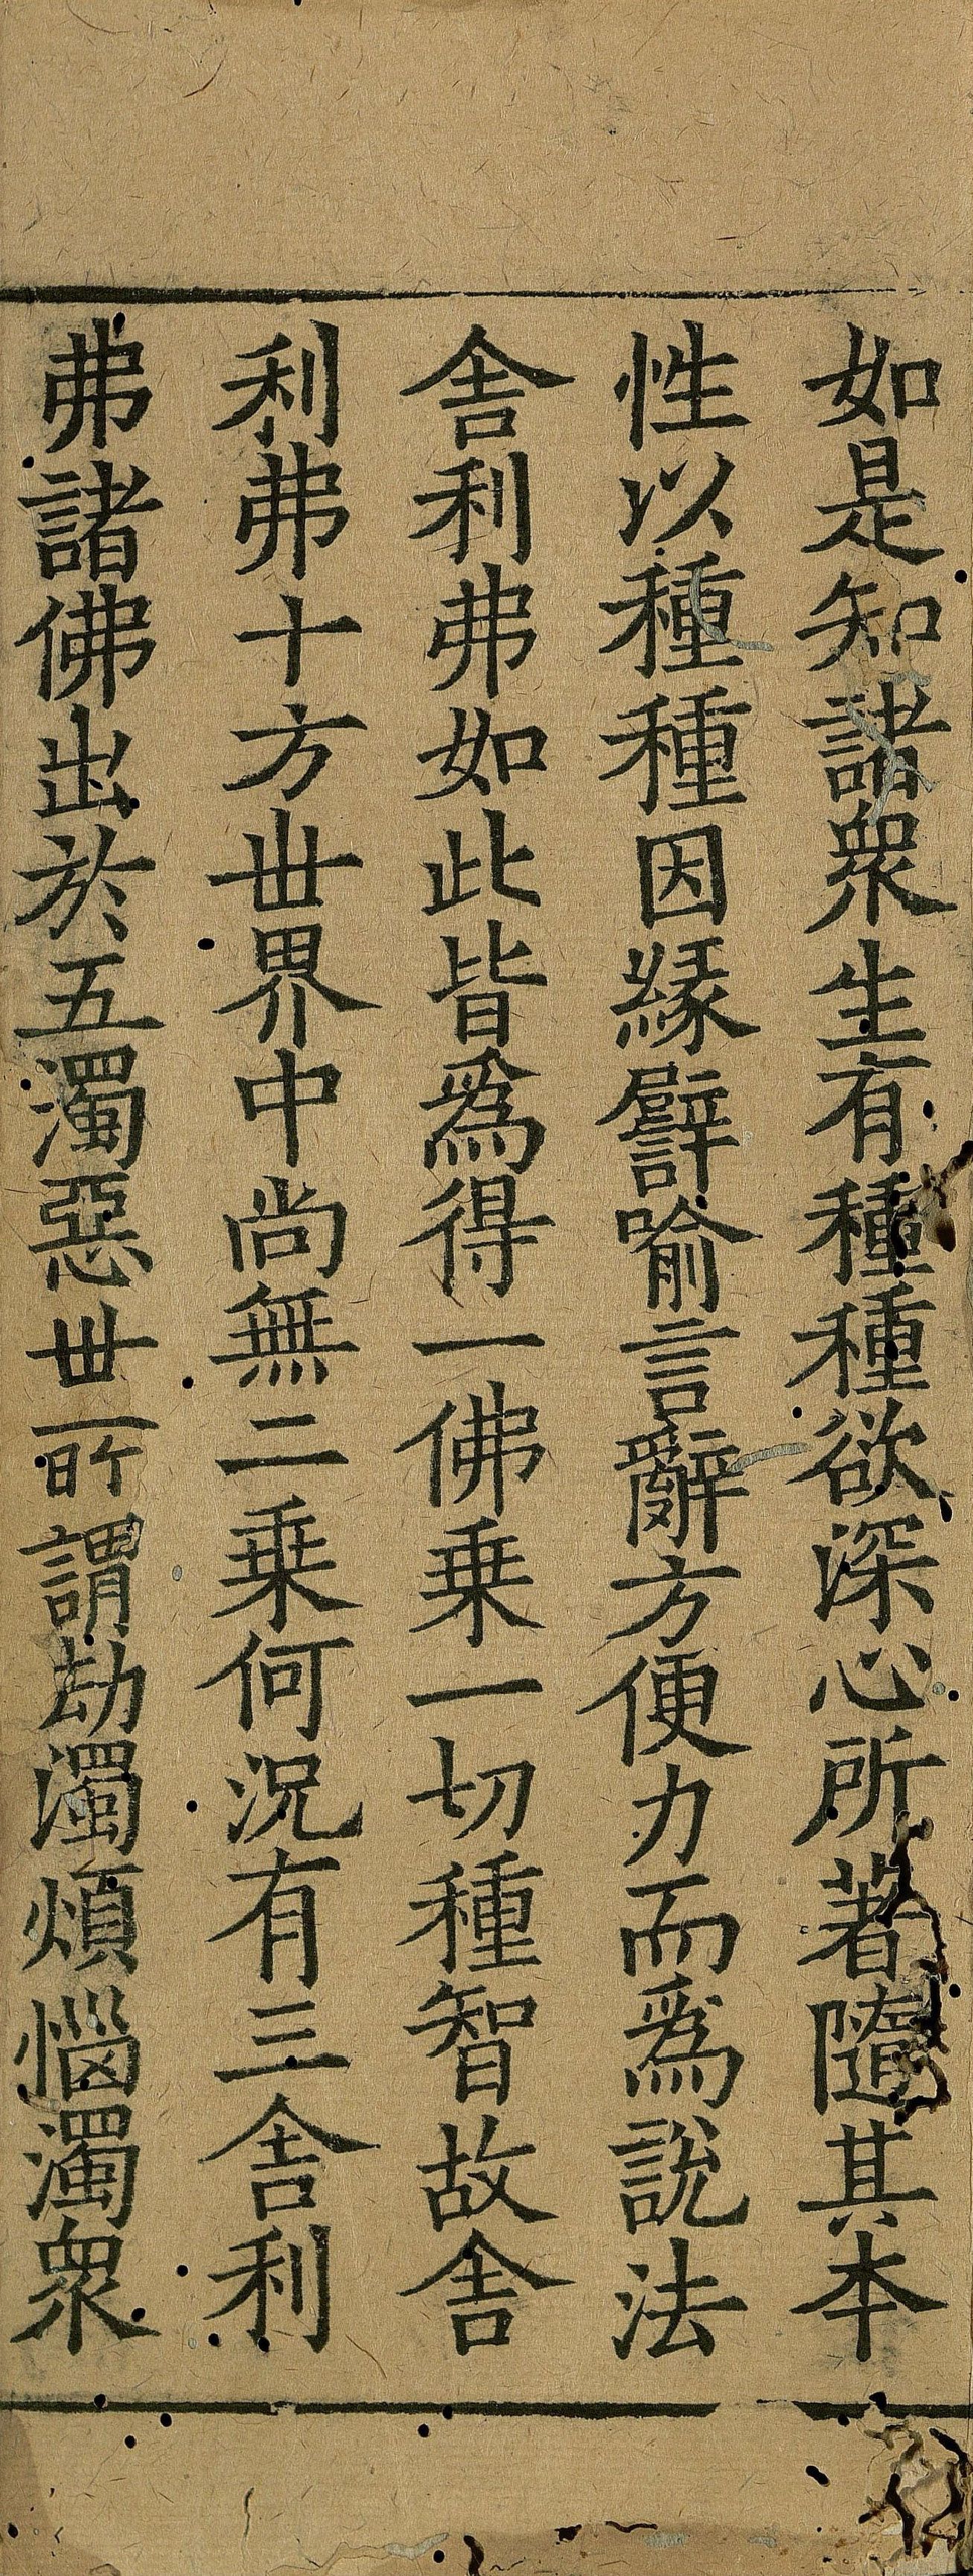 如是知諸衆生有種種欲深心所著隨其本
性以種種因緣譬喻言辭方便力而爲說法
舍利弗如此皆爲得一佛乗一切種智故舍
利弗十方丗界中尚無二乗何況有三舍利
弗諸佛出於五濁惡丗所謂劫濁煩惱濁衆